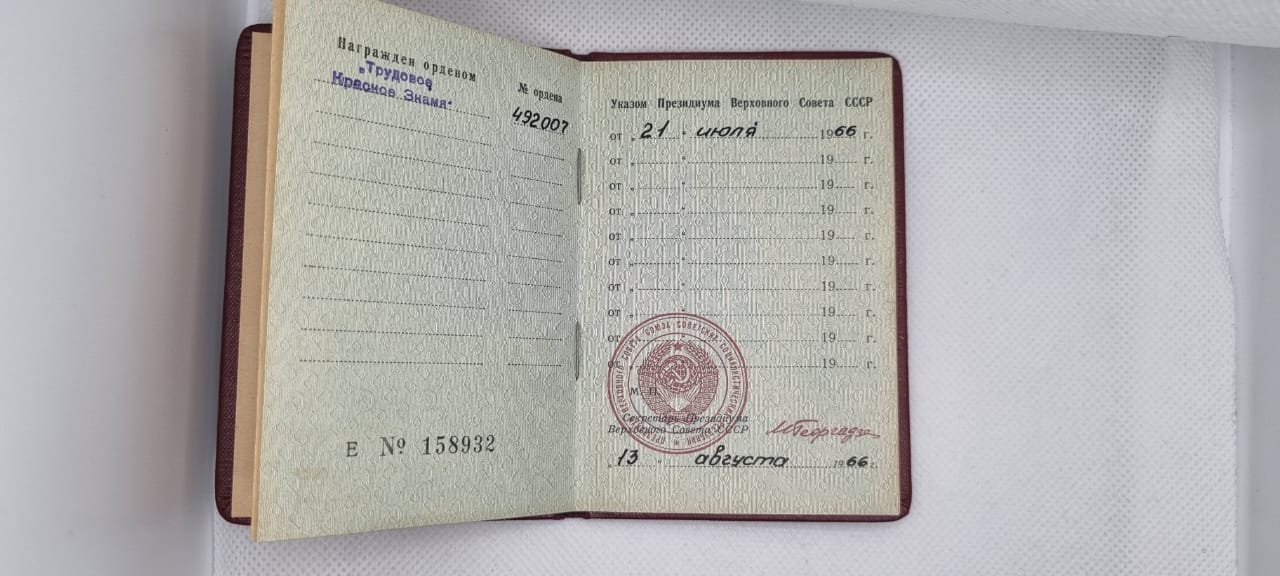 Награжден орденом
„Трудовое
Красное Знамя"
№ ордена
492007
Е № 158932
Указом Президиума Верховного Совета СССР
от „ 21 " июля 1966 г.
от „ " 19 г.
от „ " 19 г.
от „ " 19 г.
от „ " 19 г.
от „ " 19 г.
от „ " 19 г.
от „ " 19 г.
от „ " 19 г.
от „ " 19 г.
М. П.
Секретарь Президиума
Верховного Совета СССР
МГеоргадзе
„ 13 " августа 1966 г.
ВЕРХОВНОГО СОВЕТА СОЮЗА СОВЕТСКИХ СОЦИАЛИСТИЧЕСКИХ